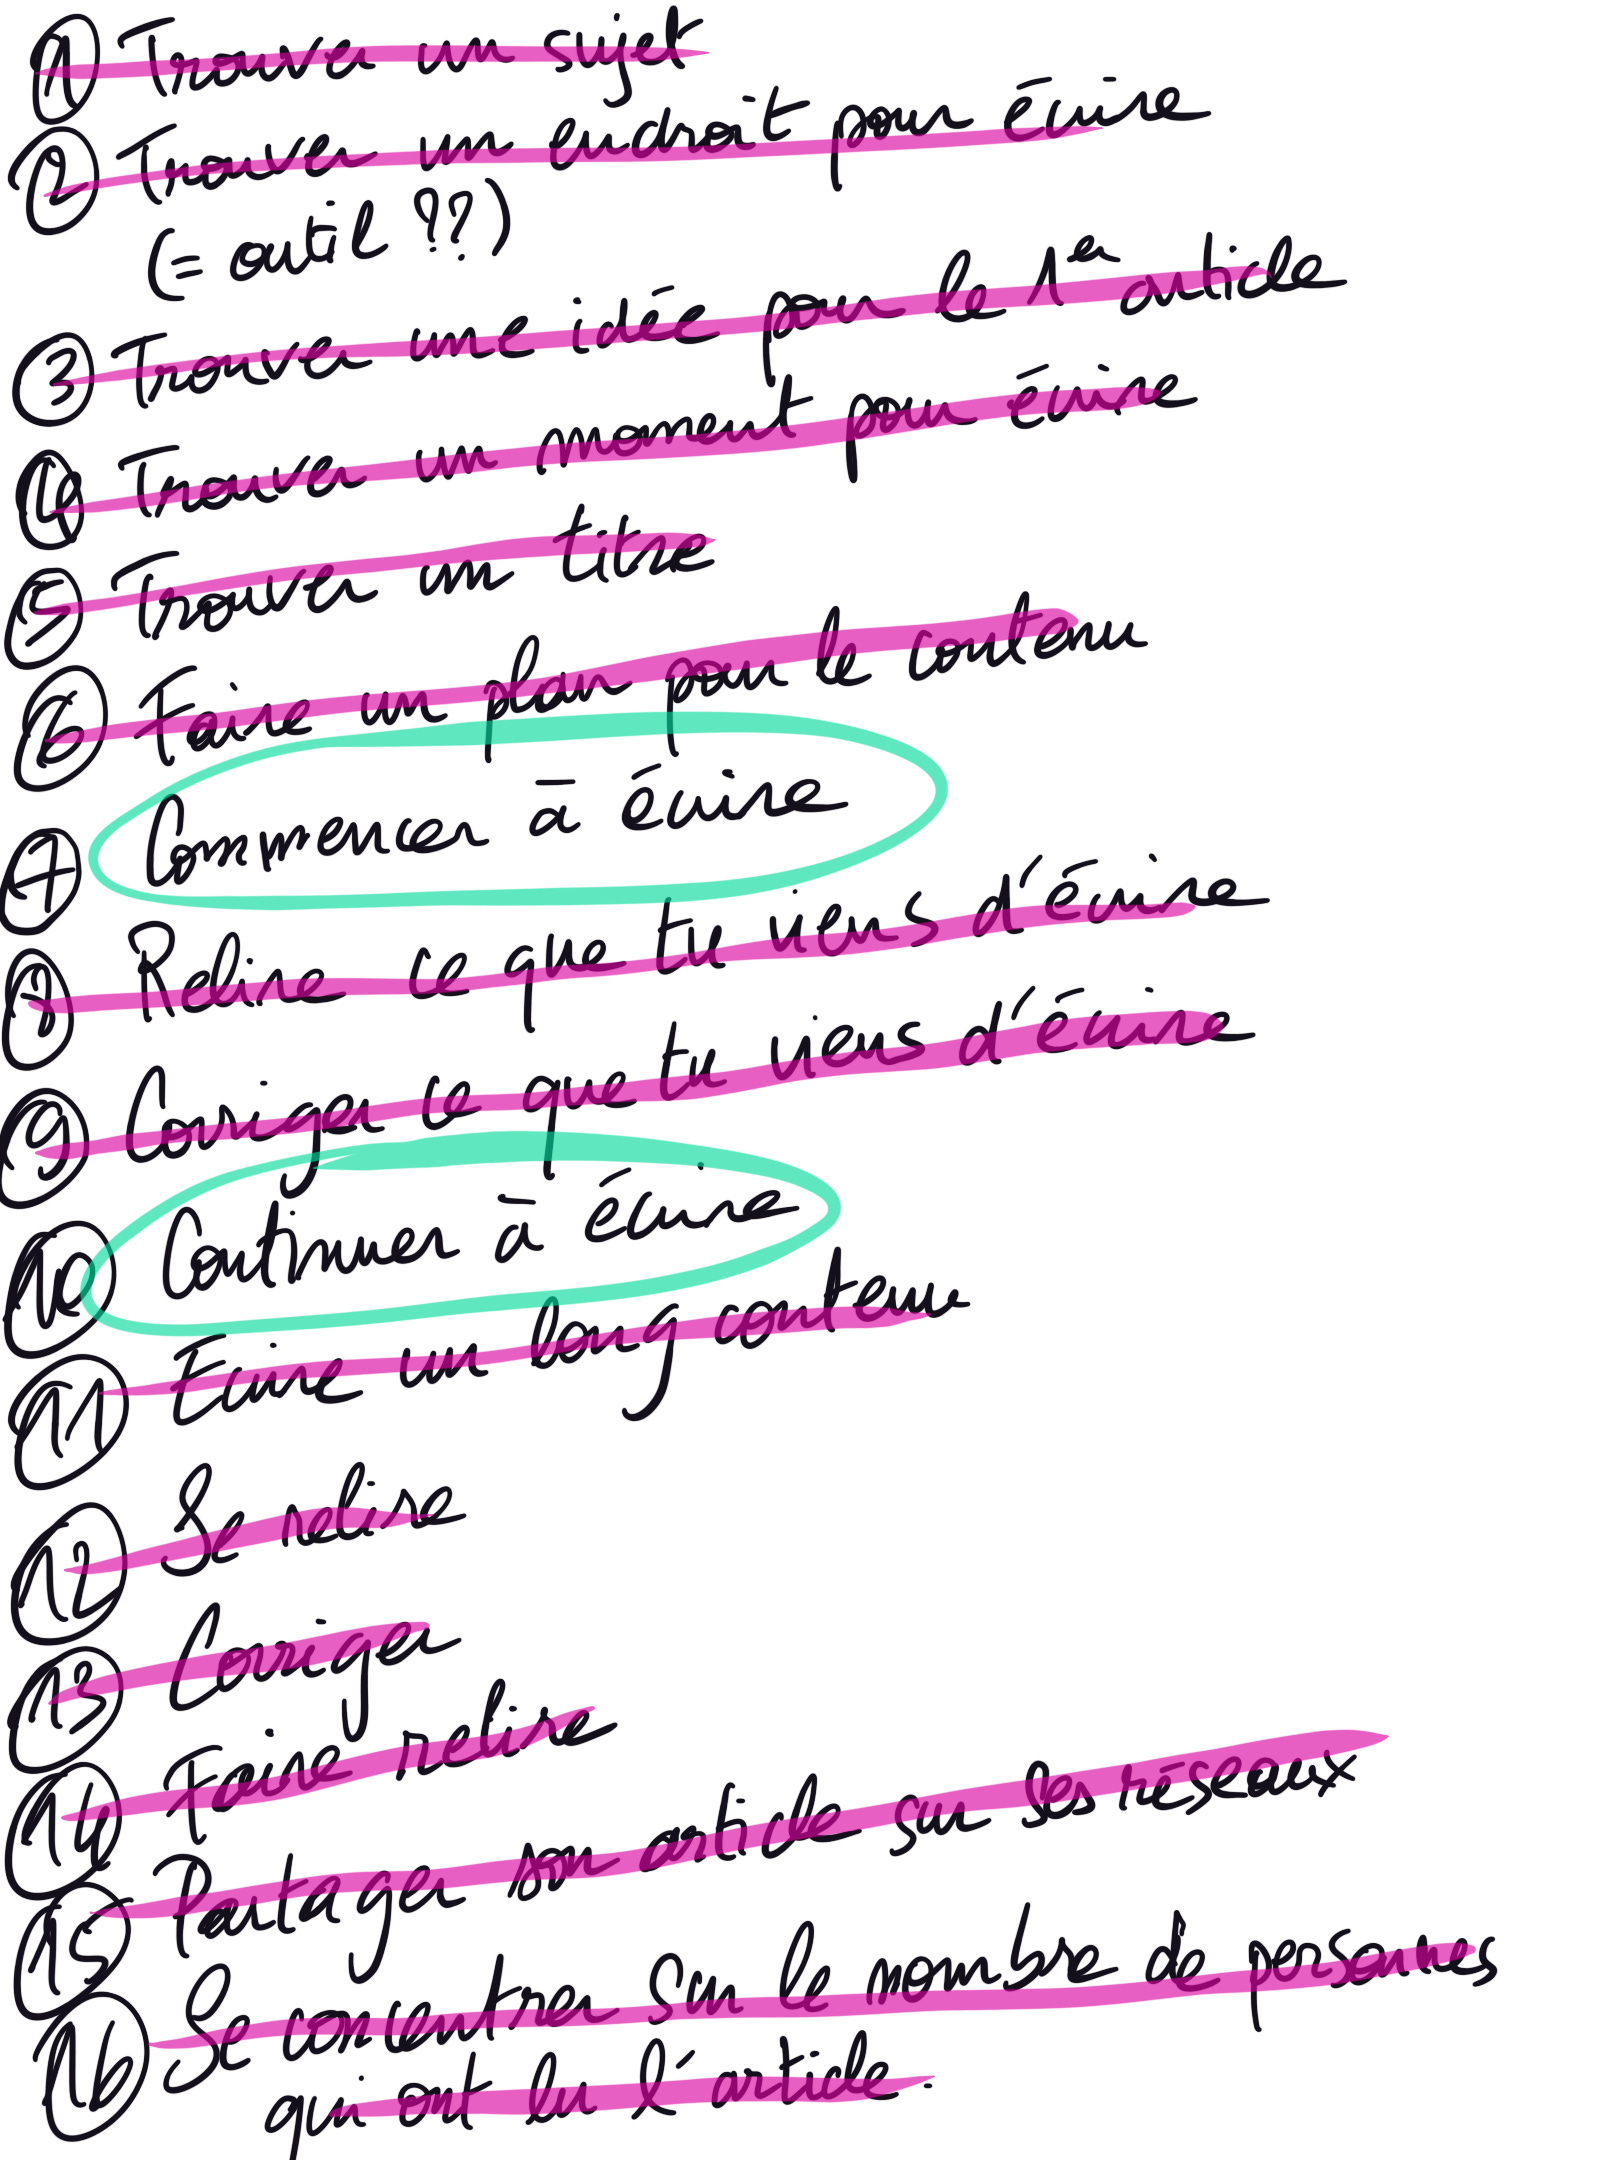 1 Trouver un sujet
2 Trouver un endroit pour écrire
(= outil ??)
3 Trouver une idée pour le 1er article
4 Trouver un moment pour écrire
5 Trouver un titre
6 Faire un plan pour le contenu
7 Commencer à écrire
8 Relire ce que tu viens d'écrire
9 Corriger ce que tu viens d'écrire
10 Continuer à écrire
11 Ecrire un long contenu
12 Se relire
13 Corriger
14 Faire relire
15 Partager son article sur les réseaux
16 Se concentrer sur le nombre de personnes
qui ont lu l'article.